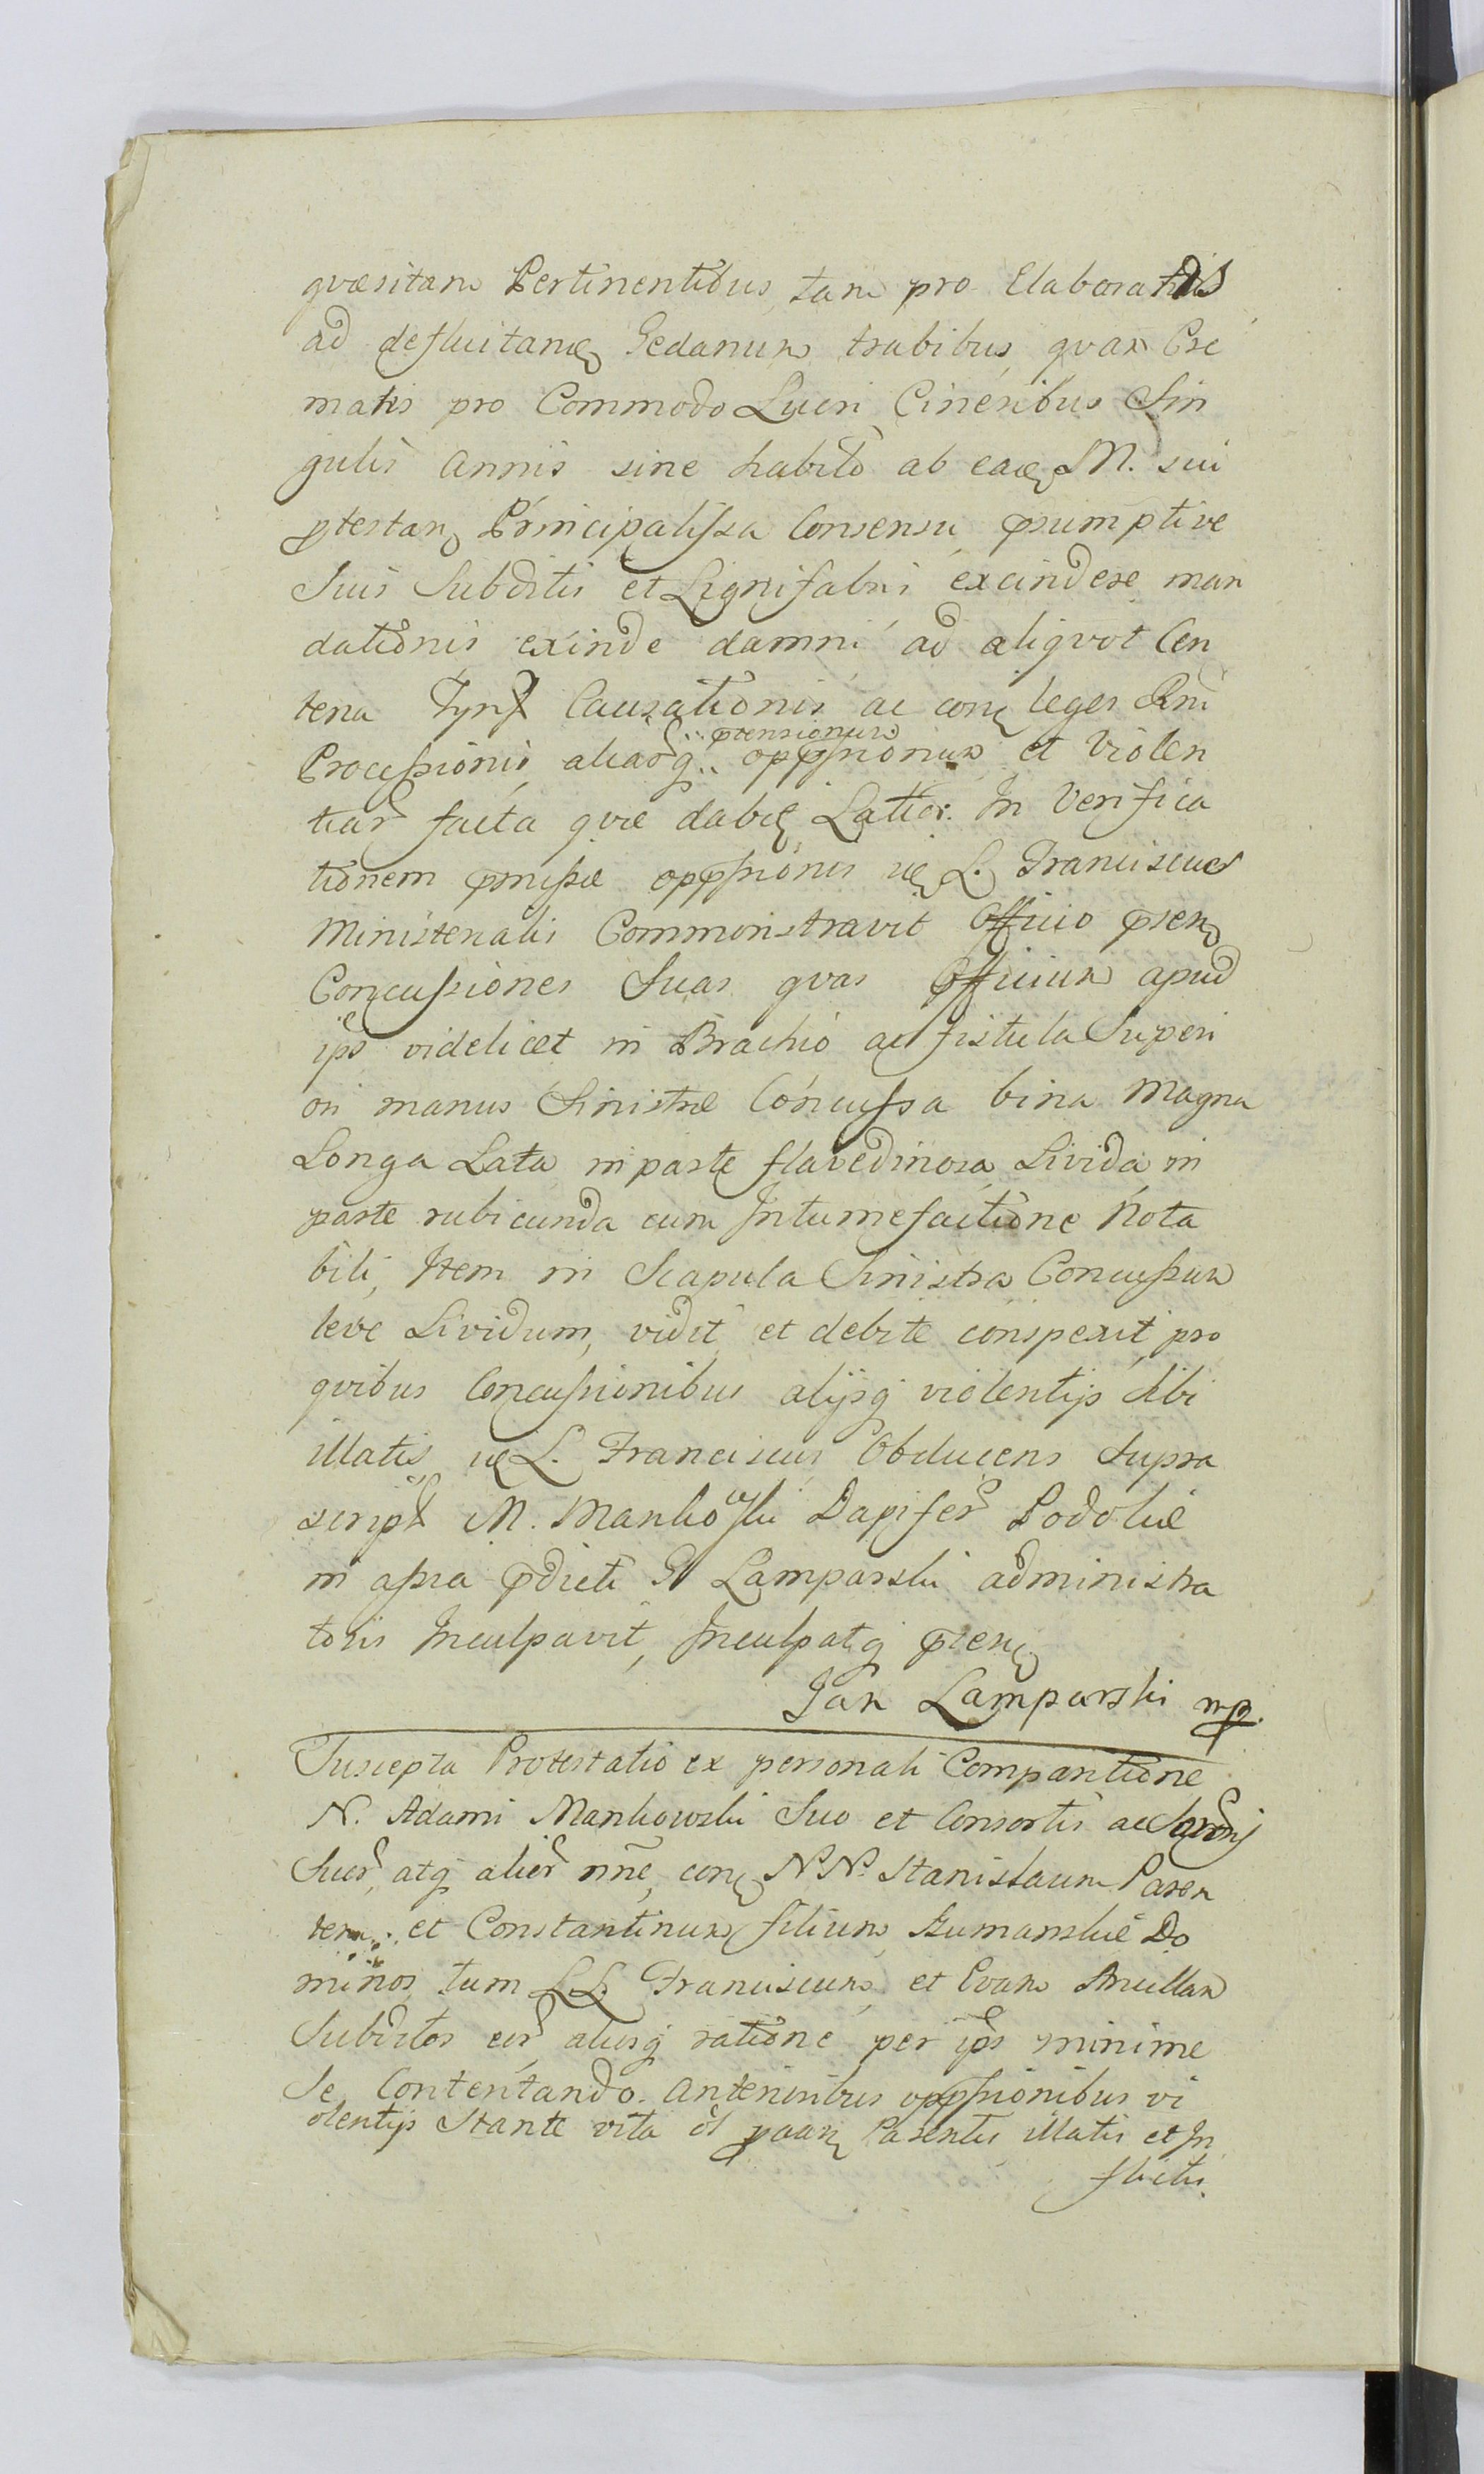 qvæsitam Pertinentibus, tam pro Elaboratis
ad defluitanę Gedanum trabibus, qvam Cre
matis pro Commodo Lucri Cineribus Sin
gulis Annis sine habito ab eadę M. sui
ptestanę Principalissa Consensu, psumptive
Suis Subditis et Lignifabris excindere man
dationis exinde damni ad aliqvot Cen
tena Causationis ac conę leges Rni
Processionis, aliarq. ptensionum oppssionum et Violen
tiar facta qvæ dabię Latior. In Verifica
tionem pmissæ oppssionis ię L. Franciscus
Ministerialis Commonstravit Officio psenę
Concussiones Suas qvas Officium apud
ips videlicet in Brachio ac fistula Superi
ori manus Sinistræ Concussa bina Magna
Longa Lata in parte flavedinosa Livida in
parte rubicunda cum Intumefactione Nota
bili, Item in Scapula Sinistra Concussum
leve Lividum, vidit et debite conspexit, pro
qvibus Concussionibus alijsq violentijs Sibi
illatis ię L. Franciscus Obducens Supra
script M. Mankowski Dapifer Podoliæ
in assa pdicti G Lamparski administra
toris Inculpavit, Inculpatq psenę
Jan Lamparski mp.
Suscepta Protestatio ex personali Comparitione
N. Adami Mankowski Suo et Consortis ac Soror
Suor, atq alior nne, conę N.N. Stanislaum Paren
tem et Constantinum filium Szumanskie Do
minos, tum LL. Franciscum et Evam Ancillam
Subditos eor, aliosq ratione per ips minime
Se Contentando anterioribus oppssionibus vi
olentijs Stante vita ol Parentis illatis et In
flictis.